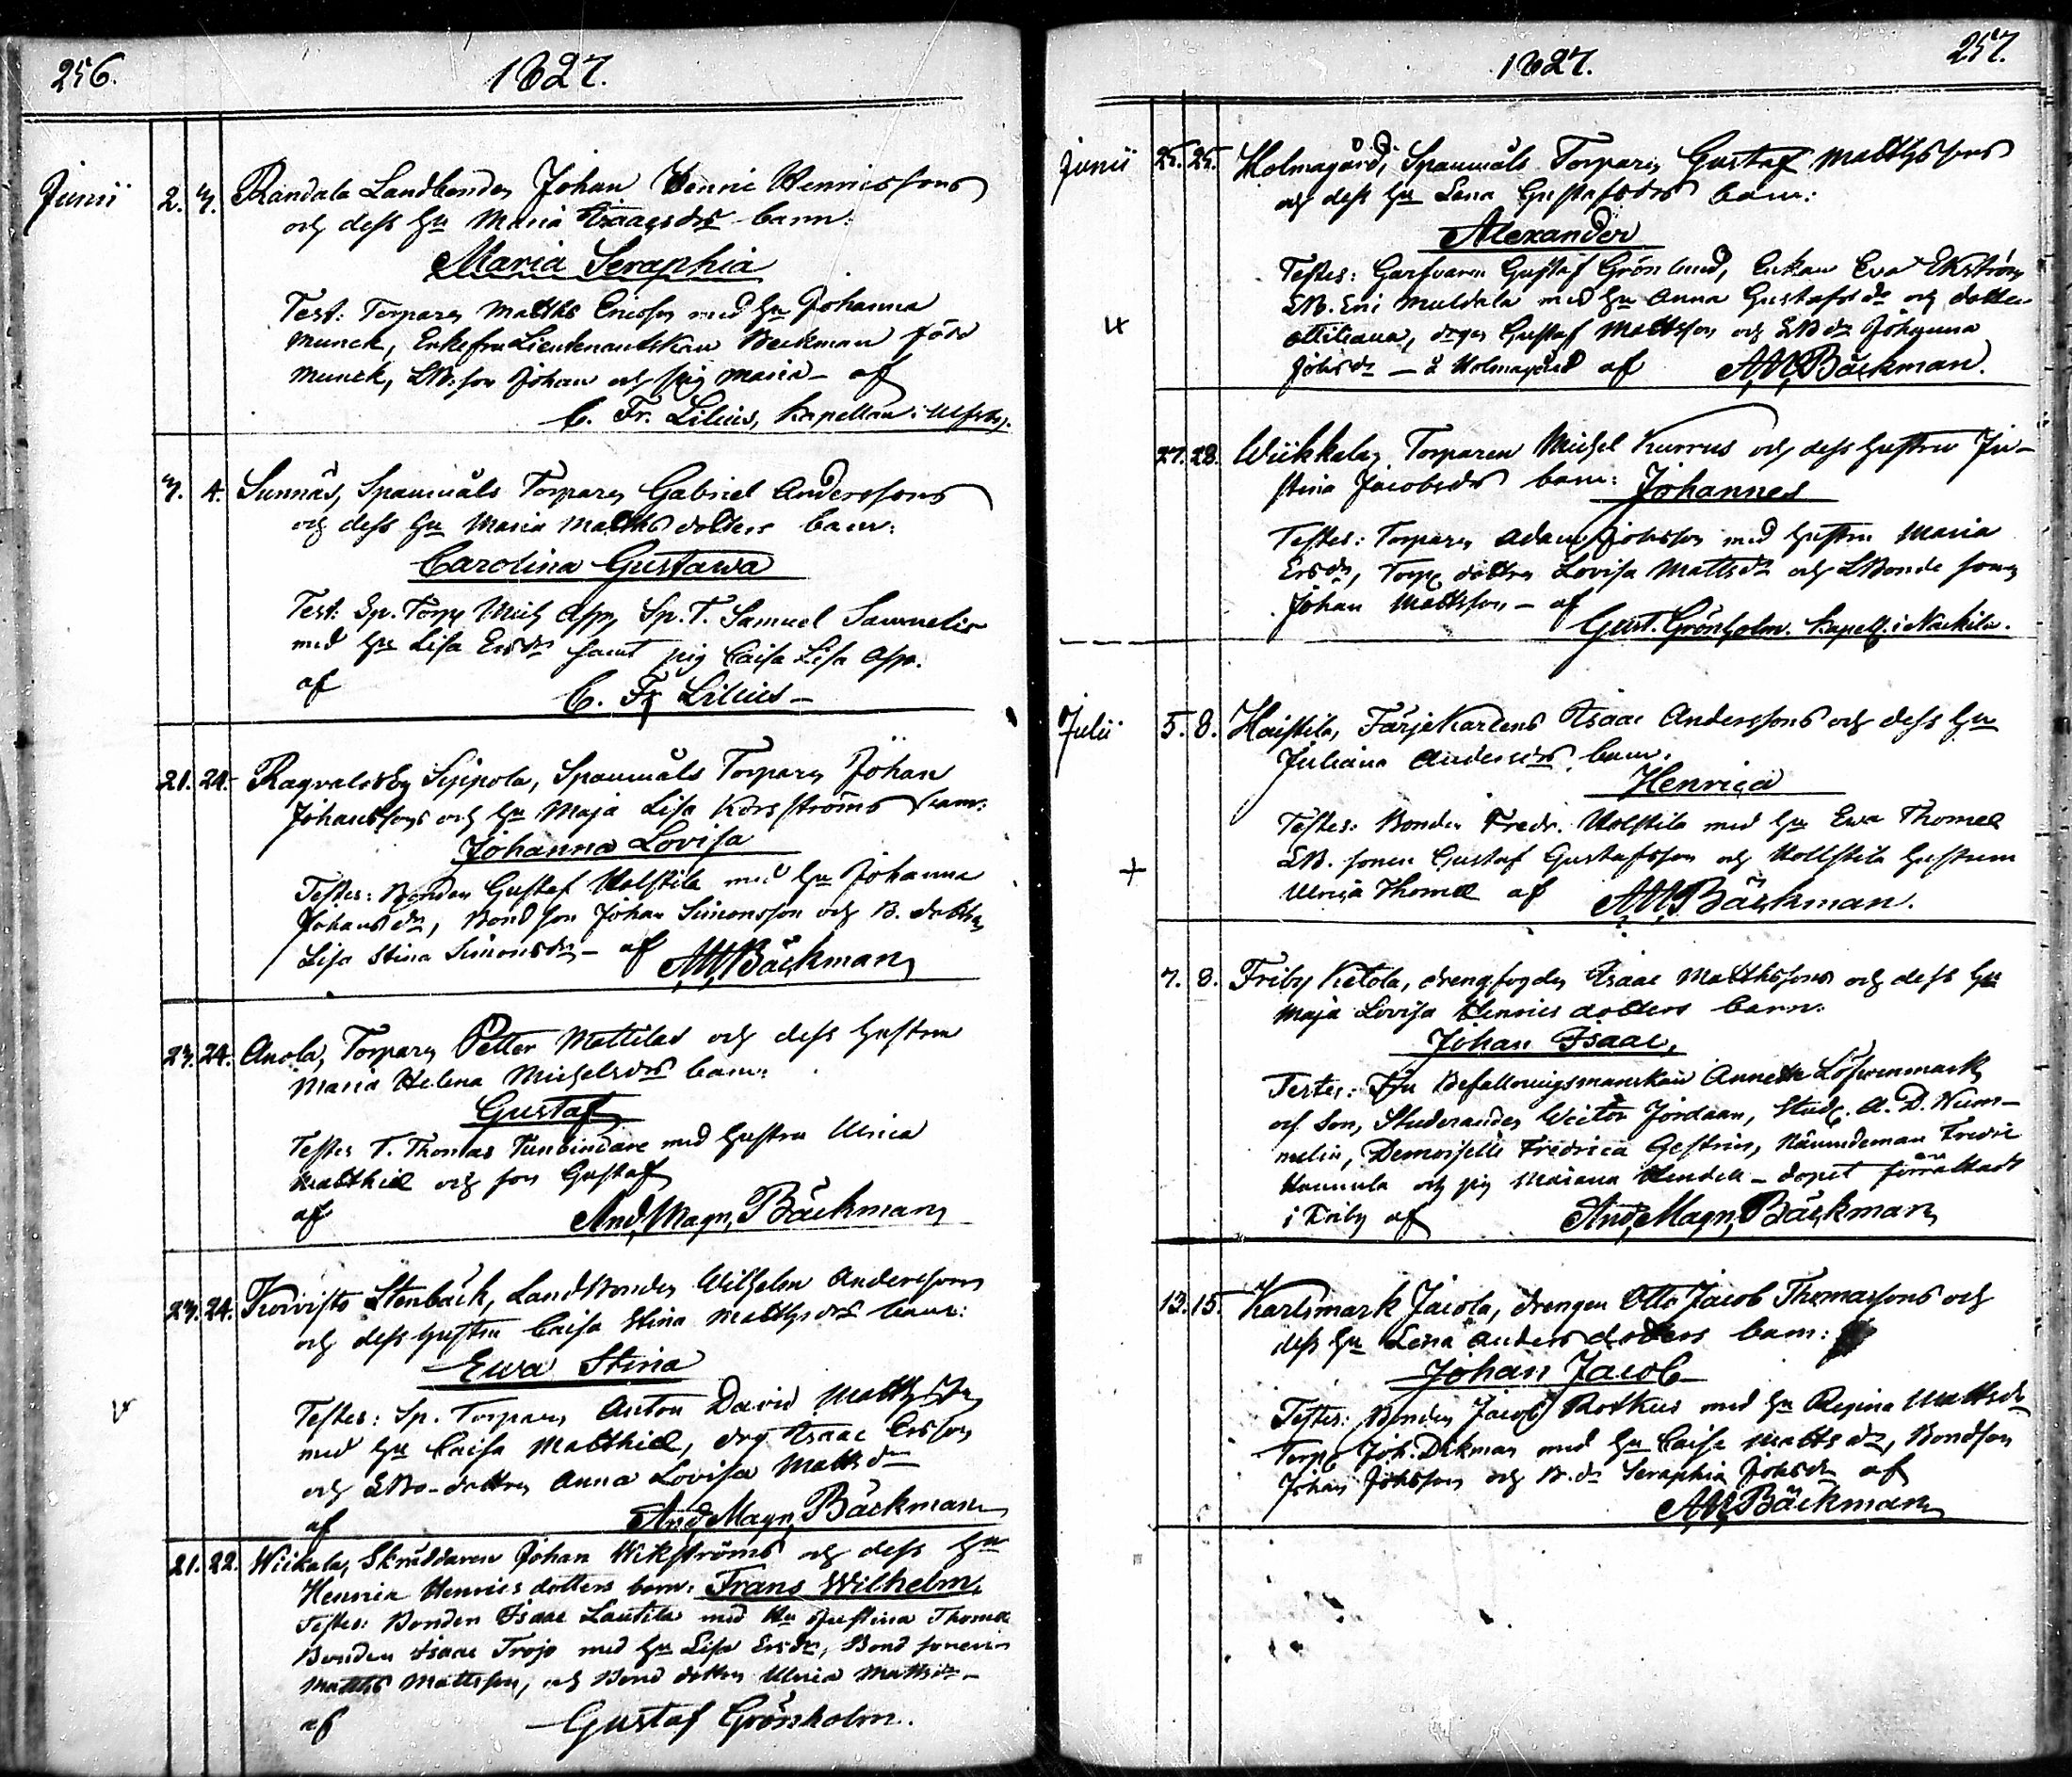 256.
1827.
Junii
2. 3. Randala Landbonden Johan Henric Henricssons
och dess Hu Maria Isaacsdrs barn:
Maria Seraphia
Test: Torparen Matths Ericsson med Hu Johanna
Munck, Enkefru Lieutenantskan Beckman född
Munck, LB:son Johan och pig Maria – af
C. Fr. Lilius, Kapellan i Ulfsby.
3. 4. Sunnäs, Spanmåls Torparen Gabriel Anderssons
och dess Hu Maria Matthsdotters barn:
Carolina Gustawa
Test: Sp. Torp Mich App, Sp. T. Samuel
med Hu Lisa Ersdr samt pig Caisa Lisa App.
af C. Fr Lilius –
21. 24. Ragvaldsby Sippola, Spanmåls Torparen Johan
Johanssons och Hu Maja Lisa Korsströms barn:
Johanna Lovisa
Testes: Bonden Gustaf Holstila med Hu Johanna
Johansdr, Bondson Johan Simonsson och B. dottren
Lisa Stina Simonsdr – af A.M. Bäckman
23. 24. Anola, Torparen Petter Mattilas och dess Hustru
Maria Helena Michelsdrs barn:
Gustaf
Testes T. Thomas Tunbindare med Hustru Ulrica
Matthiæ och son Gustaf
af And. Magn. Bäckman
23. 24. Koivisto Stenbäck, Landbonden Wilhelm Anderssons
och dess Hustru Caisa Stina Matthsdrs barn:
Ewa Stina
Testes: Sp. Torparen Anton David
med Hu Caisa Matthiæ, drg Isaac Ersson
och LBo-dottren Anna Lovisa Mattsdr
af And. Magn. Bäckman
21. 22. Wiikala, Skräddaren Johan Wikströms och dess Hu
Henrica Henricsdotters barn: Frans Wilhelm
Testes: Bonden Isaac Lautila med Hu Justina Thomæ
Bonden Isaac Trojo med Hu Lisa Ersdr, Bond sonen
Matths Mattsson, och Bond dottren Ulrica Mattsdr –
af Gustaf Grönholm.
257.
1827.
Junii
25. 25. Holmagård, Spanmåls Torparen Gustaf Matthssons
och dess Hu Lena Gustafsdrs barn:
Alexander
Testes: Garfvaren Gustaf Grönlund, Enkan Eva Ekström
LB. Eric Muldala med Hu Anna Gustafsdr och dotter
drgen Gustaf Mattsson och LBdr Johanna
Johsdr – å Holmagård af A.M. Bäckman.
27. 28. Wiikkala, Torparen Michel Kurrus och dess hustru Ju-
stina Jacobsdrs barn: Johannes
Testes: Torparen Adam Johsson med hustru Maria
Ersdr, Torp dottren Lovisa Mattsdr och LBonde sonen
Johan Mattsson – af
Gust. Grönholm. Kapell. i Nackila.
Julii
5. 8. Haistila, Färjekarlens Isaac Anderssons och dess Hu
Juliana Andersdrs barn:
Henrica
Testes: Bonden Fredr. Holstila med Hu Ewa Thomæ
LB. sonen Gustaf Gustafsson och Hollstila hustrun
Ulrica Thomæ af A.M. Bäckman.
7. 8. Friby Ketola, drengfogden Isaac Matthssons och dess Hu
Maja Lovisa Henrics dotters barn:
Johan Isaac,
Testes: Fru Befallningsmanskan Annette Löfwenmark
och Son, Studeranden Victor Jordaan, Stud. A. D. Num-
melin, Demoiselle Fredrica Gestrin, Nämndeman Fredric
Hannula och pig Mariana Hendell – dopet förrättadt
i Friby af And. Magn. Bäckman
13. 15. Karlsmark Jacola, drengen Otto Jacob Thomassons och
dess Hu Lena Andersdotters barn:
Johan Jacob
Testes: Bonden Jacob Rotkus med Hu Regina Mattsdr
Torp Joh. Dikman med Hu Caisa Mattsdr, Bondson
Johan Johsson och B.dr Seraphia Johsdr af
A.M. Bäckman